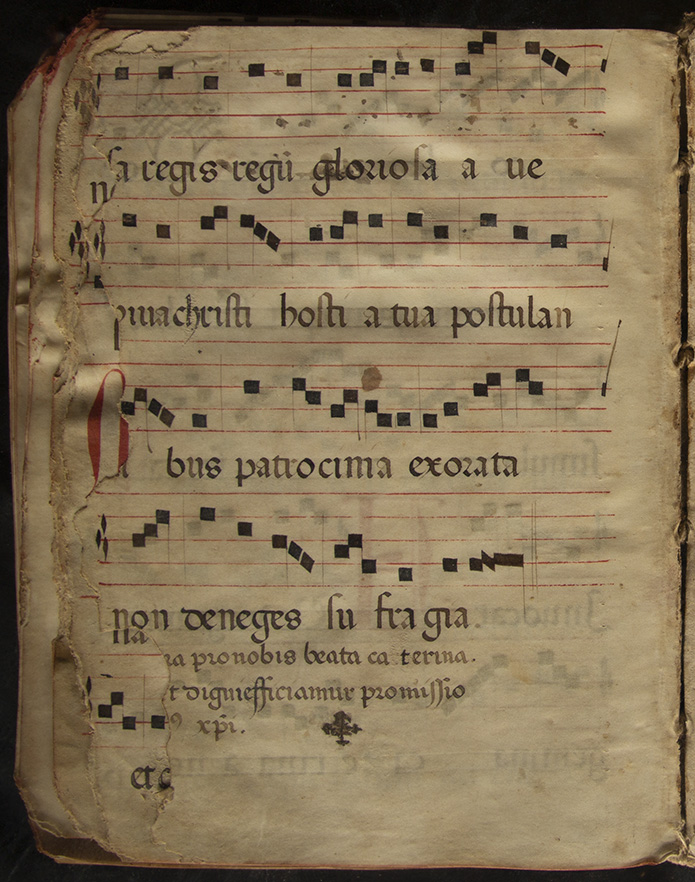 sa regis regū gloriosa a ue
n
piiiachristi hosti a tua postulan
bus patrocinia exorata
non deneges su fra gia.
na
ia pro nobis beata ca terina.
t digni efficiamur promissio
xpi.
et c